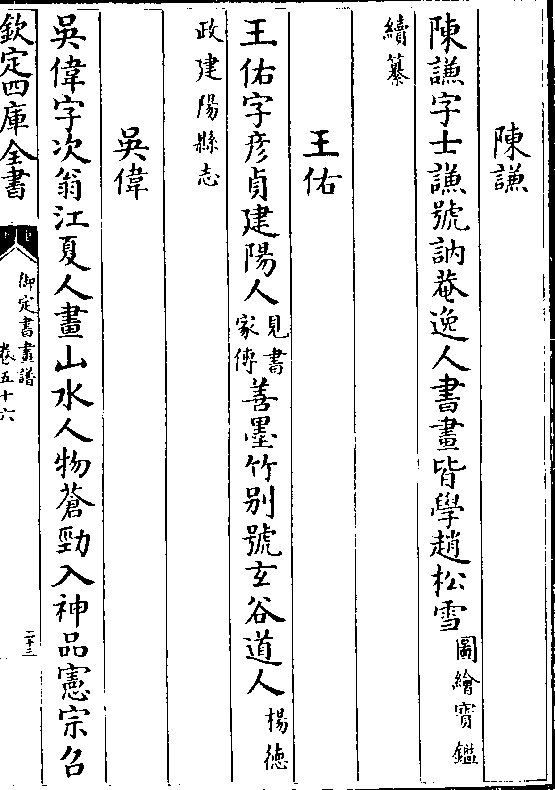 陳謙
陳謙字士謙號訥菴逸人書畫皆學趙松雪圖繪寶鑑
續纂
王佑
王佑字彥貞建陽人見書家傳善墨竹别號玄谷道人楊德
政建陽縣志
吳偉
吳偉字次翁江夏人畫山水人物蒼勁入神品憲宗召
欽定四庫全書
御定書畫譜
卷五十六
二十三